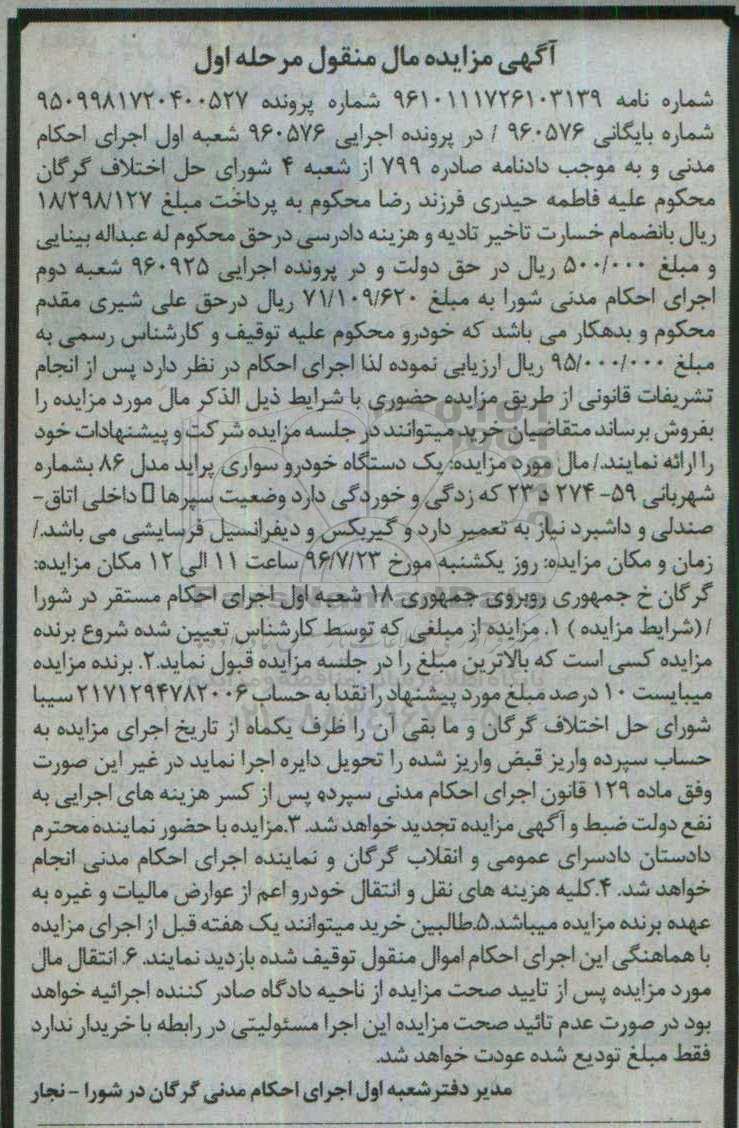 آگهی مزایده مال منقول مرحله اول
شماره نامه ۹۶۱۰۱۱۱۷۲۶۱۰۳۱۳۹ شماره پرونده ۹۵۰۹۹۸۱۷۲۰۴۰۰۵۲۷
شماره بایگانی ۹۶۰۵۷۶ / در پرونده اجرایی ۹۶۰۵۷۶ شعبه اول اجرای احکام
مدنی و به موجب دادنامه صادره ۷۹۹ از شعبه ۴ شورای حل اختلاف گرگان
محکوم علیه فاطمه حیدری فرزند رضا محکوم به پرداخت مبلغ ۱۸/۲۹۸/۱۲۷
ریال بانضمام خسارت تاخیر تادیه و هزینه دادرسی درحق محکوم له عبداله بینایی
و مبلغ ۵۰۰/۰۰۰ ریال در حق دولت و در پرونده اجرایی ۹۶۰۹۲۵ شعبه دوم
اجرای احکام مدنی شورا به مبلغ ۷۱/۱۰۹/۶۲۰ ریال درحق علی شیری مقدم
محکوم و بدهکار می باشد که خودرو محکوم علیه توقیف و کارشناس رسمی به
مبلغ ۹۵/۰۰۰/۰۰۰ ریال ارزیابی نموده لذا اجرای احکام در نظر دارد پس از انجام
تشریفات قانونی از طریق مزایده حضوری با شرایط ذیل الذکر مال مورد مزایده را
بفروش برساند متقاضیان خرید میتوانند در جلسه مزایده شرکت و پیشنهادات خود
را ارائه نمایند./ مال مورد مزایده: یک دستگاه خودرو سواری پراید مدل ۸۶ بشماره
شهربانی ۵۹- ۲۷۴ د ۲۳ که زدگی و خوردگی دارد وضعیت سپرها داخلی اتاق-
صندلی و داشبرد نیاز به تعمیر دارد و گیربکس و دیفرانسیل فرسایشی می باشد./
زمان و مکان مزایده: روز یکشنبه مورخ ۹۶/۷/۲۳ ساعت ۱۱ الی ۱۲ مکان مزایده:
گرگان خ جمهوری روبروی جمهوری ۱۸ شعبه اول اجرای احکام مستقر در شورا
/ (شرایط مزایده ) ۱. مزایده از مبلغی که توسط کارشناس تعیین شده شروع برنده
مزایده کسی است که بالاترین مبلغ را در جلسه مزایده قبول نماید.۲. برنده مزایده
میبایست ۱۰ درصد مبلغ مورد پیشنهاد را نقدا به حساب ۲۱۷۱۲۹۴۷۸۲۰۰۶ سیبا
شورای حل اختلاف گرگان و ما بقی آن را ظرف یکماه از تاریخ اجرای مزایده به
حساب سپرده واریز قبض واریز شده را تحویل دایره اجرا نماید در غیر این صورت
وفق ماده ۱۲۹ قانون اجرای احکام مدنی سپرده پس از کسر هزینه های اجرایی به
نفع دولت ضبط و آگهی مزایده تجدید خواهد شد. ۳.مزایده با حضور نماینده محترم
دادستان دادسرای عمومی و انقلاب گرگان و نماینده اجرای احکام مدنی انجام
خواهد شد. ۴.کلیه هزینه های نقل و انتقال خودرو اعم از عوارض مالیات و غیره به
عهده برنده مزایده میباشد.۵.طالبین خرید میتوانند یک هفته قبل از اجرای مزایده
با هماهنگی این اجرای احکام اموال منقول توقیف شده بازدید نمایند. ۶. انتقال مال
مورد مزایده پس از تایید صحت مزایده از ناحیه دادگاه صادر کننده اجرائیه خواهد
بود در صورت عدم تائید صحت مزایده این اجرا مسئولیتی در رابطه با خریدار ندارد
فقط مبلغ تودیع شده عودت خواهد شد.
مدیر دفتر شعبه اول اجرای احکام مدنی گرگان در شورا - نجار